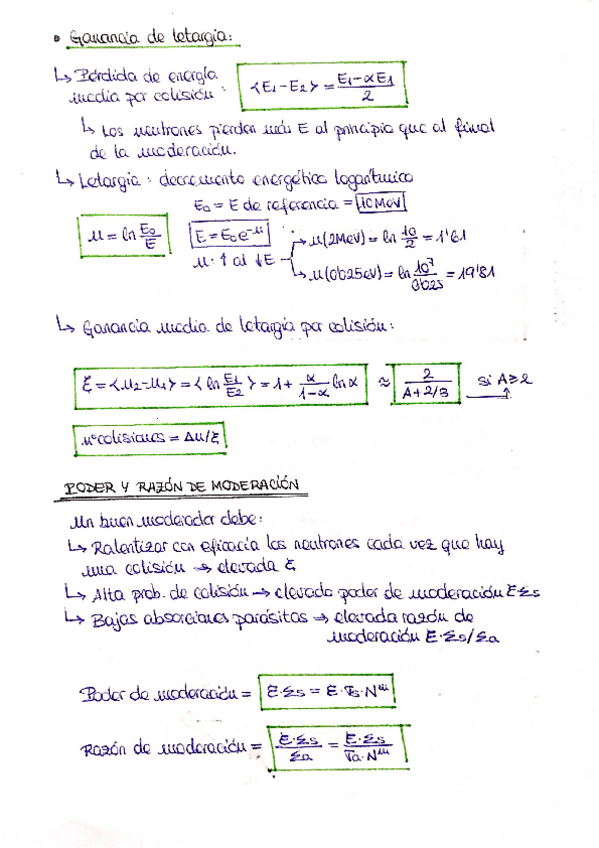 • Ganancia de letargia:
↳ Pérdida de energía
media por colisión : <E1-E2> = (E1-αE1)/2
↳ Los neutrones pierden más E al principio que al final
de la moderación.
↳ Letargia : decremento energético logarítmico
E0 = E de referencia = 10 MeV
u = ln E0/E   E = E0e^-u   → u(2MeV) = ln 10/2 = 1'61
u: ↑ al ↓E   → u(0'025eV) = ln 10^7/0'025 = 19'81
↳ Ganancia media de letargia por colisión:
ξ = <u2-u1> = <ln E1/E2> = 1 + α/(1-α) ln α ≈ 2/(A+2/3) si A≥2
nº colisiones = Δu/ξ
PODER Y RAZÓN DE MODERACIÓN
Un buen moderador debe:
↳ Ralentizar con eficacia los neutrones cada vez que hay
una colisión → elevada ξ
↳ Alta prob. de colisión → elevado poder de moderación ξ·Σs
↳ Bajas absorciones parásitas → elevada razón de
moderación ξ·Σs/Σa
Poder de moderación = ξ·Σs = ξ·σs·N'''
Razón de moderación = ξ·Σs/Σa = ξ·Σs/σa·N'''